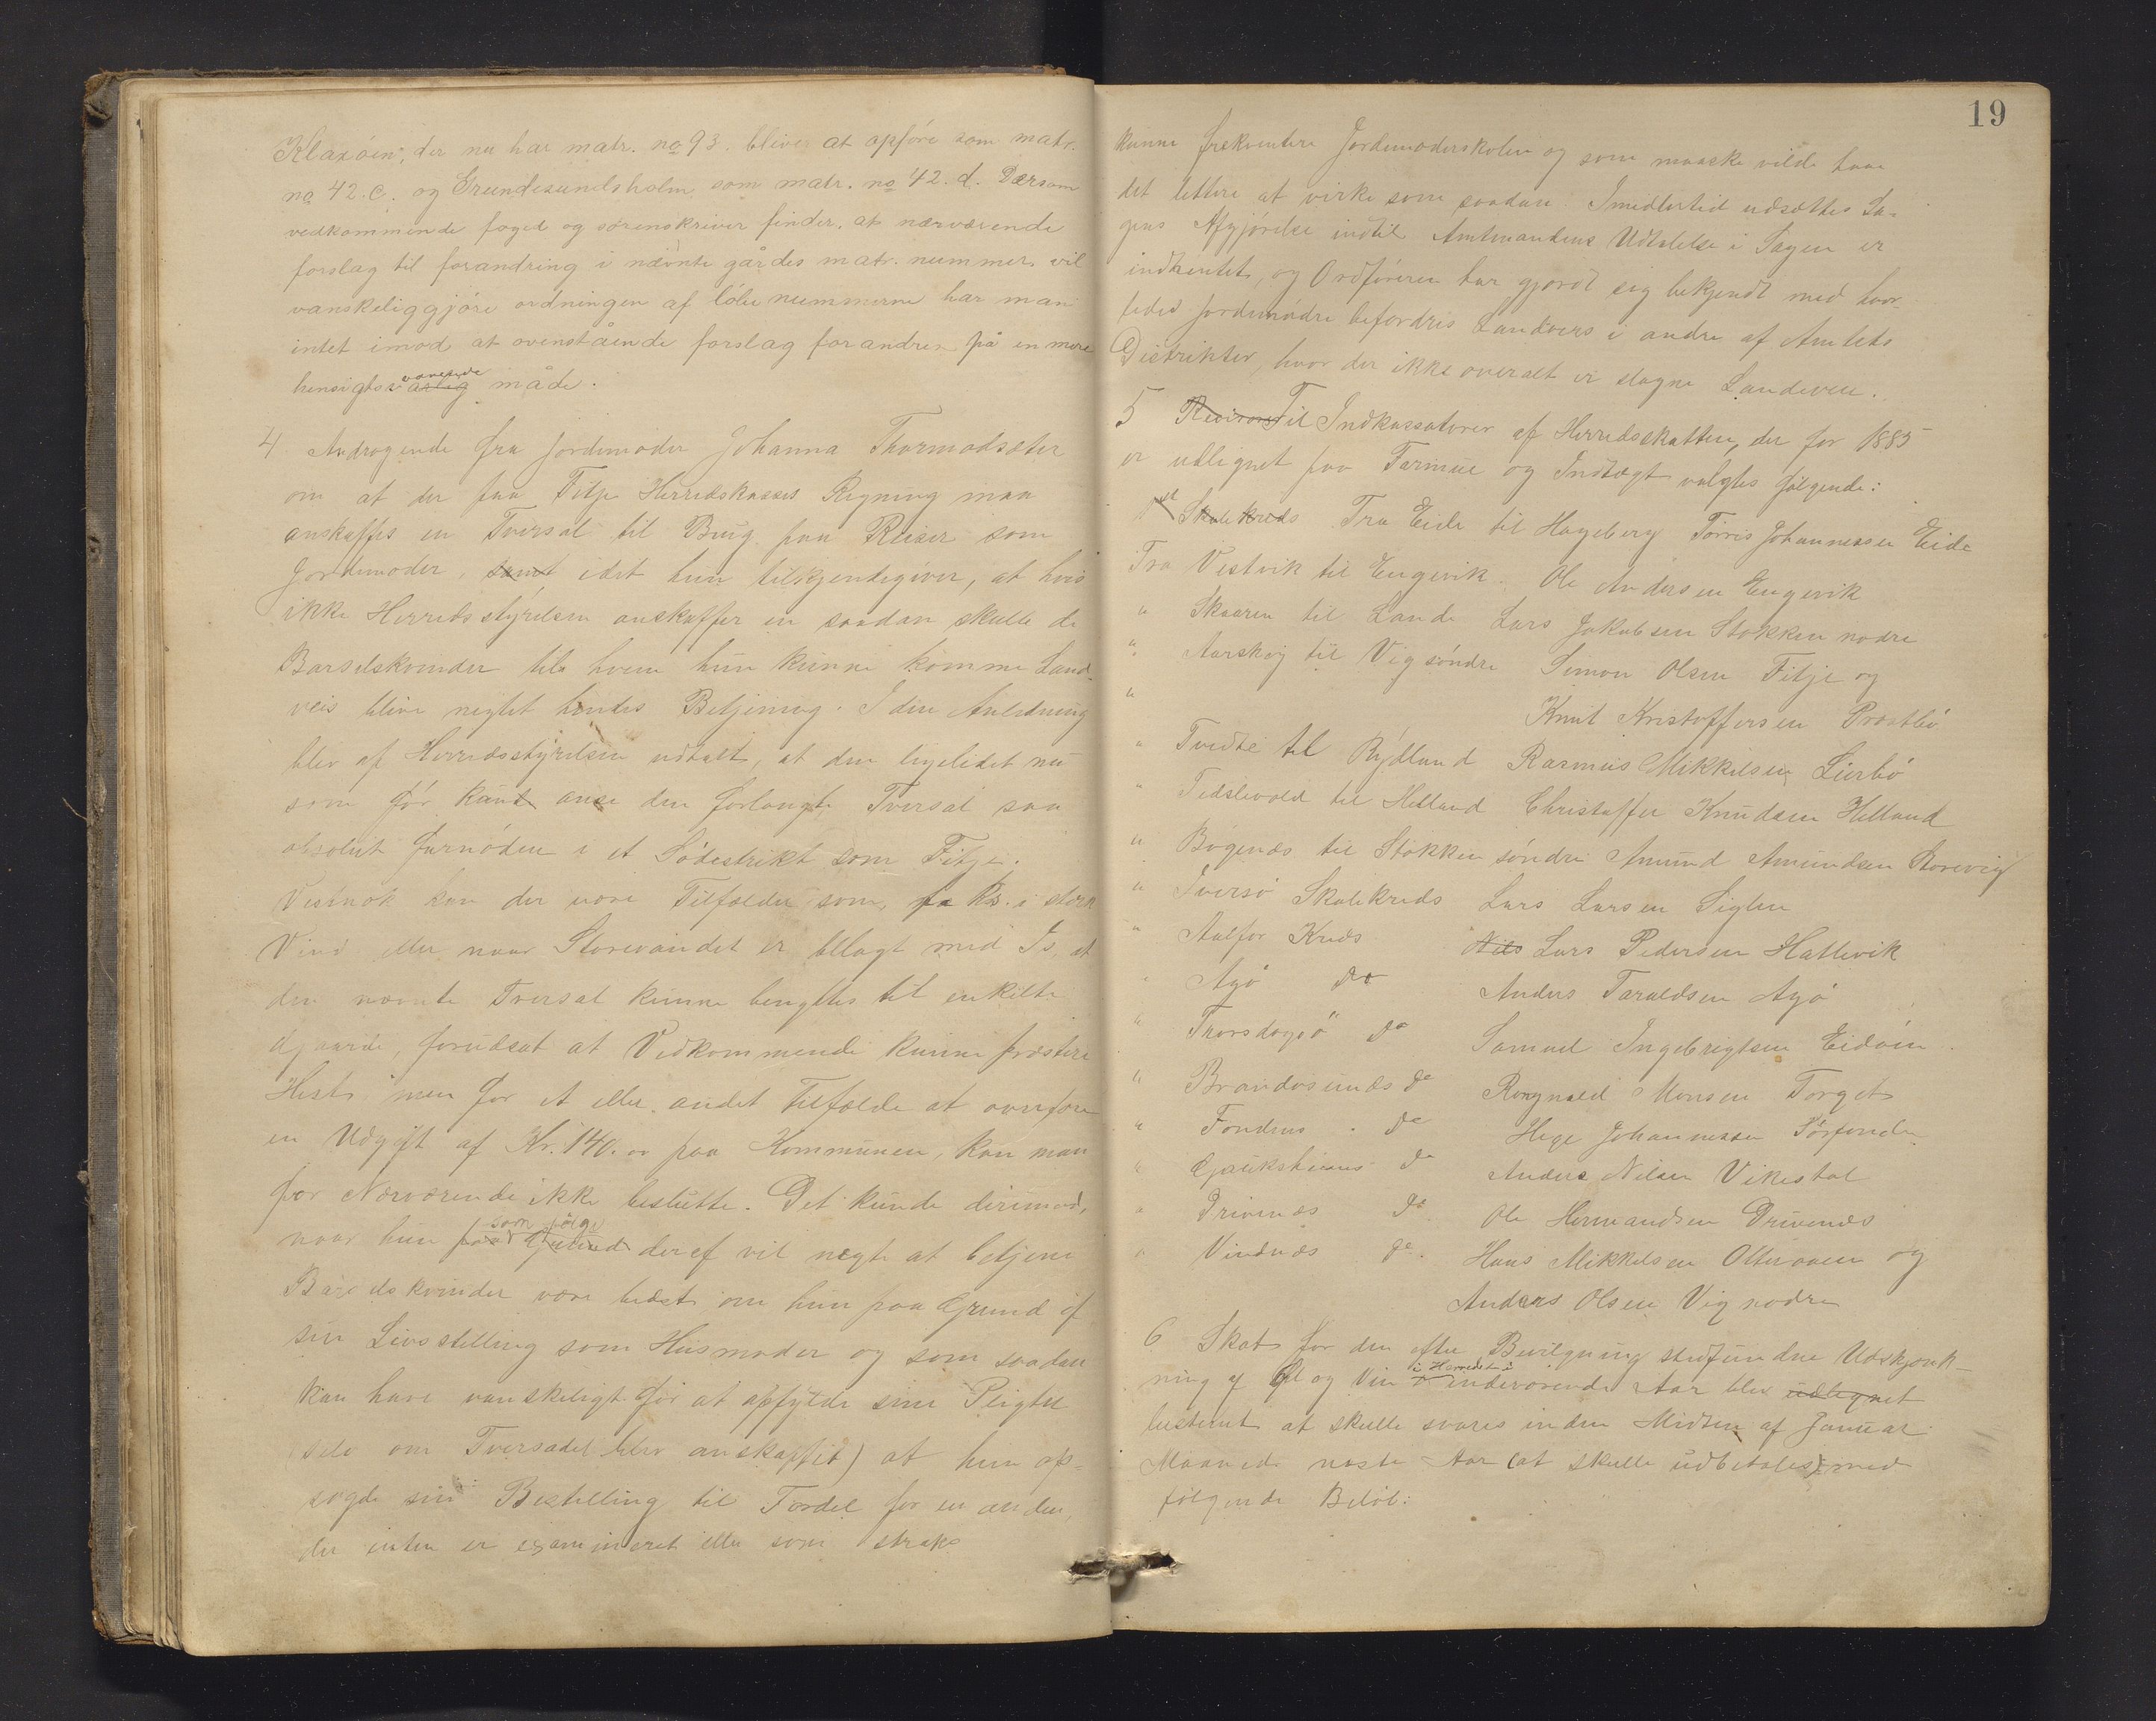 Klaxóen, der nu har matr. no 93. bliver at opføre som matr.
no 42.c. og Grundesundsholm som matr. no 42.d. Dersom
vedkommende foged og sorenskriver finder, at nærværende
forslag til forandring i nævnte gårdes matr. nummer, vil
vanskeliggjöre ordningen af löbenummerne har man
intet imod at ovenstående forslag forandres på en mere
hensigtsvarende måde.
4 Andragende fra Jordemoder Johanna Thormodsæter
om at der paa Fitje Herredskasses Regning maa
anskaffes en Tversal til Brug paa Reiser som
Jordemoder, samt idet hun tilkjendegiver, at hvis
ikke Herredsstyrelsen anskaffer en saadan skulle de
Barselskvinder til hvem hun kunne komme Land-
veis blive negtet hendes Betjening. I den Anledning
blev af Herredsstyrelsen udtalt, at den ligeledet nu
som før kunde anse den forlangte Tversal saa
absolut fornöden i et Södistrikt som Fitje.
Vistnok kan der være Tilfælder som, fx. i sterk
Vind eller naar Storevandet er belagt med Is, at
den nævnte Tversal kunne benyttes til enkelte
Gaarde, forudsat at Vedkommende kunne præstere
Hest, men for et eller andet Tilfælde at ovenføre
en Udgift af Kr. 140.00 paa Kommunen, kan man
for Nærværende ikke beslutte. Det kunde derimod,
som følge
naar hun paa Grund deraf vil negte at betjene
Barselskvinder være bedst, om hun paa Grund af
sin Livsstilling som Husmoder og som saadan
kan have vanskeligt for at opfylde sine Pligter
selv om Tversadel blev anskaffet) at hun op-
sagde sin Bestilling til Fordel for en anden,
der enten er examineret eller som straks
19
kunne frekventere Jordemoderskolen og som maaske vilde have
det lettere at virke som saadan. Imidlertid udsættes Sa-
gens Afgjørelse indtil Amtmandens Udtalelse i Sagen er
indhentet, og Ordføreren har gjordt sig bekjendt med hvor-
ledes Jordemødre befordres Landveis i andre af Amtets
Distrikter, hvor der ikke overalt er slagne Landeveie.
5 Til Indkassatorer af Herredsskatten, der for 1885
er udlignet paa Formue og Indtægt valgtes følgende:
1st Skolekreds Fra Eide til Hageberg Tørris Johannessen Eide
Fra Vestvik til Engevik. Ole Andersen Engevik
" Skaaren til Lande Lars Jakobsen Stokken nodre
" Aarskog til Vig söndre Simon Olsen Fitje og
" Knut Kristoffersen Præstbö
" Tveite til Rydland Rasmus Mikkelsen Lierbö
" Tedslevold til Helland Christoffer Knudsen Helland
" Bogenæs til Stokken söndre Amund Amundsen Storevig
" Iversö Skolekreds Lars Larsen Siglen
" Aalfor Kreds Nils Lars Pedersen Hatlevik
" Agö do Anders Taraldsen Agö
" Thorsdagsö do Samuel Ingebrigtsen Eidöen
" Brandasunds do Rongnald Monsen Torget
" Fondnes do Hege Johannessen Sörfonden
" Gaukshiems do Anders Nilsen Vikestol
" Drivenæs do Ole Hermandsen Drivenæs
" Vindnæs do Hans Mikkelsen Otteraaen og
Anders Olsen Vig nodre
6 Skat for den efter Bevilgning stedfundne Udskjænk-
i Herredet i
ning af Øl og Vin indeværende Aar blev udlignet
bestemt at skulle svares inden Midten af Januar
Maaned næste Aar (at skulle udbetales) med
følgende Beløb: